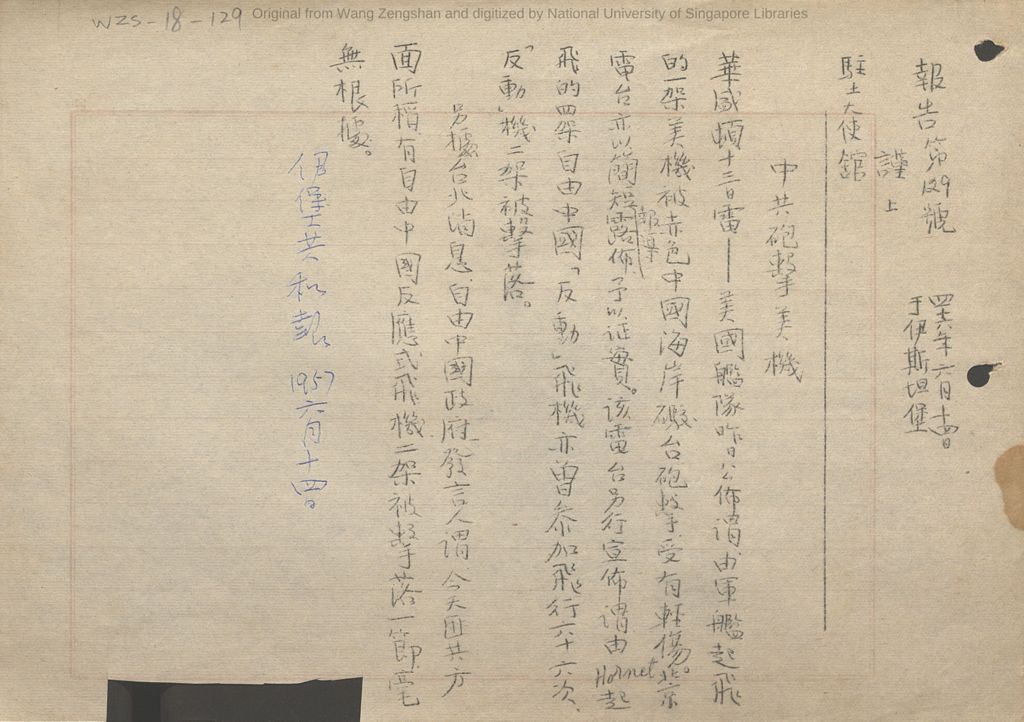 WZS-18-129
Original from Wang Zengshan and digitized by National University of Singapore Libraries
報告第129號
四十六年六月十四日
于伊斯坦堡
謹上
駐土大使館
中共砲擊美機
華盛頓十三日電——美國艦隊昨日公佈謂由軍艦起飛
的一架美機被赤色中國海岸礮台砲擊受有輕傷。北京
電台亦以簡短報導予以証實。該電台另行宣佈謂由Hornet起
飛的四架自由中國「反動」飛機亦曾參加飛行六十六次、
「反動」機二架被擊落。
另據台北消息、自由中國政府發言人謂、今天匪共方
面所稱、有自由中國反應式飛機二架被擊落一節、毫
無根據。
伊堡共和報 1957六月十四日